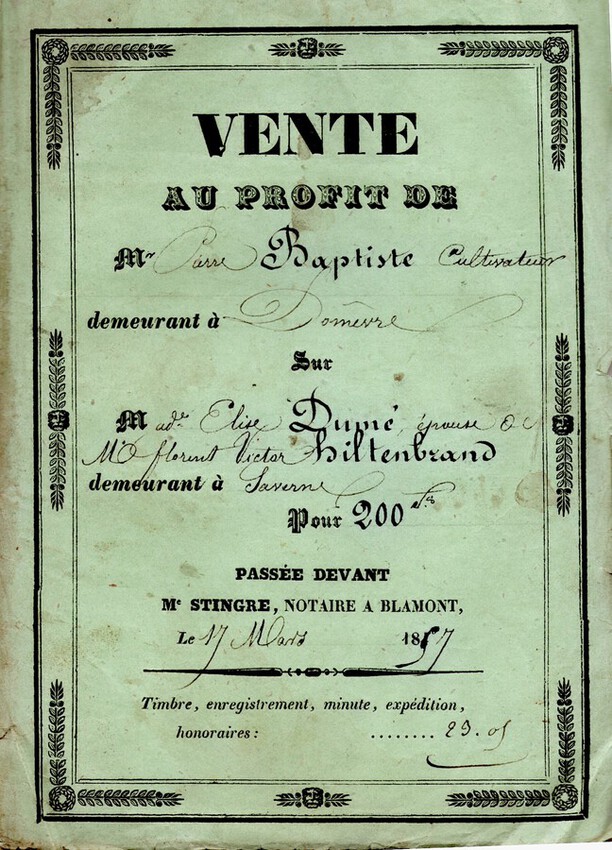 VENTE
AU PROFIT DE
Mr Pierre Baptiste Cultivateur
demeurant à Domêvre
Sur
Made Elise Dumé, épouse de
Mr florent Victor hiltenbrand
demeurant à Saverne
Pour 200 fs
PASSÉE DEVANT
Me STINGRE, NOTAIRE A BLAMONT,
Le 17 Mars 1857
Timbre, enregistrement, minute, expédition,
honoraires : ........ 23. 05